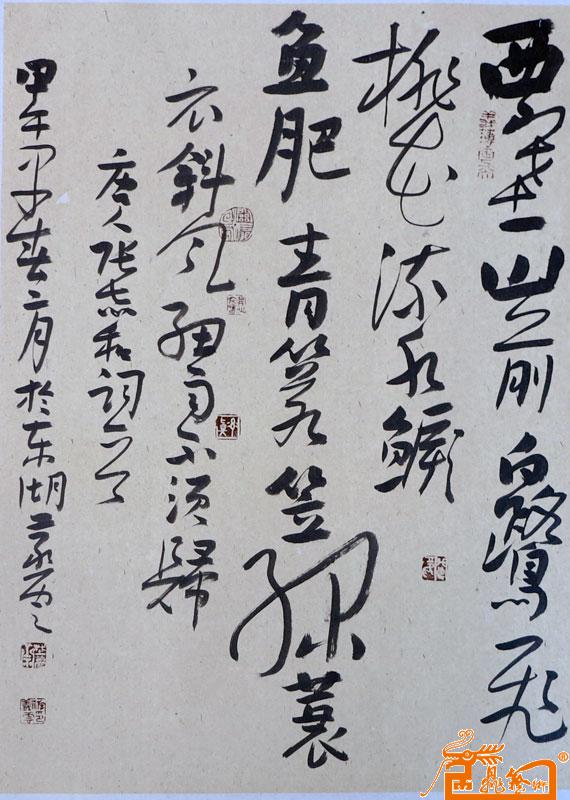 西塞山前白鹭飞
桃花流水鳜
鱼肥青箬笠绿蓑
衣斜风细雨不须归
唐人张志和词
甲午年春二月於东湖